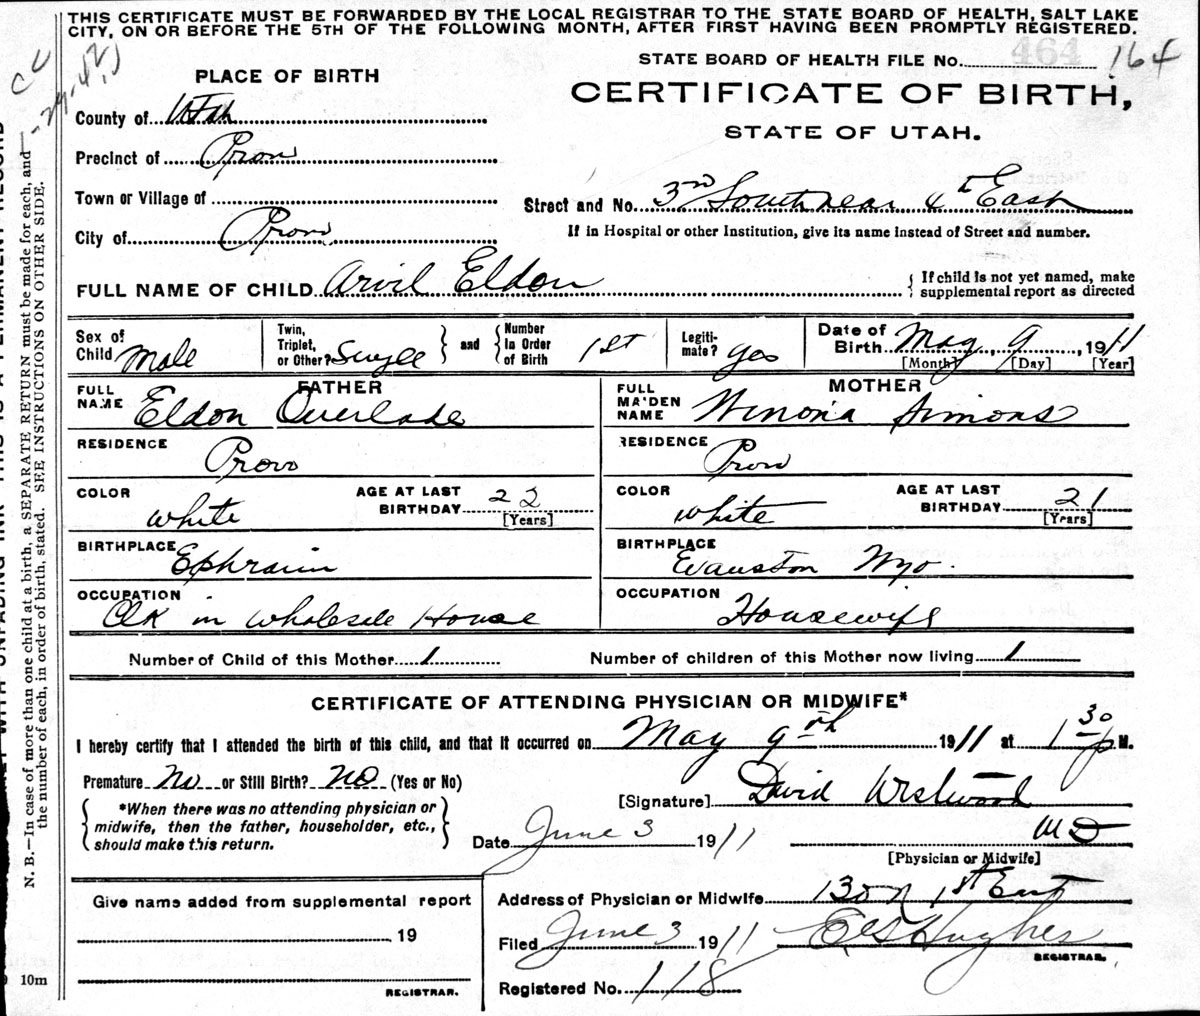 THIS CERTIFICATE MUST BE FORWARDED BY THE LOCAL REGISTRAR TO THE STATE BOARD OF HEALTH, SALT LAKE
CITY, ON OR BEFORE THE 5TH OF THE FOLLOWING MONTH, AFTER FIRST HAVING BEEN PROMPTLY REGISTERED.
STATE BOARD OF HEALTH FILE No. 464 164
PLACE OF BIRTH
CERTIFICATE OF BIRTH,
STATE OF UTAH.
County of Utah
Precinct of Provo
Town or Village of
Street and No. 3rd South near 4th East
City of Provo
If in Hospital or other Institution, give its name instead of Street and number.
FULL NAME OF CHILD Arvil Eldon
If child is not yet named, make
supplemental report as directed
Sex of Child Male
Twin, Triplet, or Other? Single
and
Number In Order of Birth 1st
Legiti-mate? Yes
Date of Birth May 9, 1911
[Month] [Day] [Year]
FATHER
MOTHER
FULL NAME Eldon Overlade
FULL MAIDEN NAME Winona Simons
RESIDENCE Provo
RESIDENCE Provo
COLOR White
AGE AT LAST BIRTHDAY 22 [Years]
COLOR White
AGE AT LAST BIRTHDAY 21 [Years]
BIRTHPLACE Ephraim
BIRTHPLACE Evanston Wyo.
OCCUPATION Clk in Wholesale House
OCCUPATION Housewife
Number of Child of this Mother 1
Number of children of this Mother now living 1
CERTIFICATE OF ATTENDING PHYSICIAN OR MIDWIFE*
I hereby certify that I attended the birth of this child, and that it occurred on May 9th 1911 at 1 30 p M.
Premature No or Still Birth? No (Yes or No)
*When there was no attending physician or
midwife, then the father, householder, etc.,
should make this return.
[Signature] David Westwood
MD
Date June 3 1911
[Physician or Midwife]
Give name added from supplemental report
19
REGISTRAR.
Address of Physician or Midwife 130 N 1st East
Filed June 3 1911 Hughes
REGISTRAR.
Registered No. 118
N. B.—In case of more than one child at a birth, a SEPARATE RETURN must be made for each, and
the number of each, in order of birth, stated. SEE INSTRUCTIONS ON OTHER SIDE.
10m